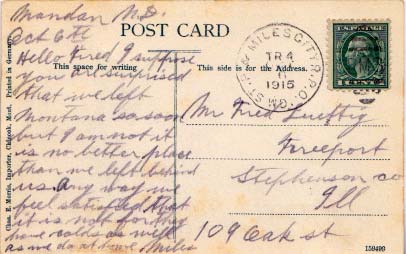 Mandan N.D.
Oct 6th
Hello Fred I suppose
you are surprised
that we left
Montana so soon
but I am not it
is no better place
than we left behind
us. Any way we
feel satisfied that
it is not for they
have colds as well
as we do at home. Miles
POST CARD
This space for writing
This side is for the Address.
Chas. E. Morris, Importer, Chinook, Mont. Printed in Germany.
MILES CITY R.P.O.
TR 4
1915
1 CENT 1
Mr Fred
Freeport
Stephenson co
Ill
109 Oak st
159490